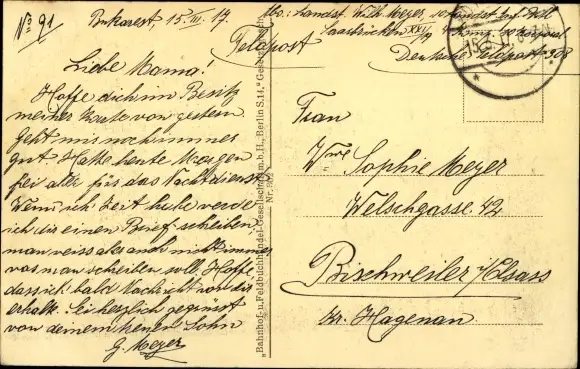 No 91
Bukarest, 15. III. 17.
Liebe Mama!
Hoffe dich im Besitz
meiner Karte von gestern
Geht mir noch immer
gut. Hatte heute Morgen
frei aber für das Nachtdienst
Wenn ich Zeit habe werde
ich dir einen Brief schreiben
man weiss aber auch nicht immer
was man schreiben soll. Hoffe
dass ich bald Nachricht von dir
erhalte. Sei herzlich gegrüsst
von deinem Sohn
G. Meyer
"Bahnhof- u. Feldbuchhandel-Gesellschaft m. b. H., Berlin S. 14,"
Abs.: Landst. Wilh. Meyer, Landst. Inf. Batl
Saarbrücken XXI/9 4 Komp. Korporal
Feldpost
Deutsche Feldpost 908
Frau
Wwe Sophie Meyer
Welschgasse 42
Bischweiler i/Elsass
Kr. Hagenau